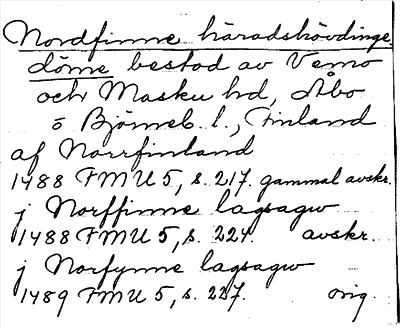 Nordfinne häradshövdinge-
döme bestod av Vemo
och Masku hd, Åbo
o Björneb. l., Finland
af Norrfinland
1488 FMU 5, s. 217. gammal avskr.
j Norffinne lagsagw
1488 FMU 5, s. 221. avskr.
j Norfynne lagsagw
1489 FMU 5, s. 227. orig.